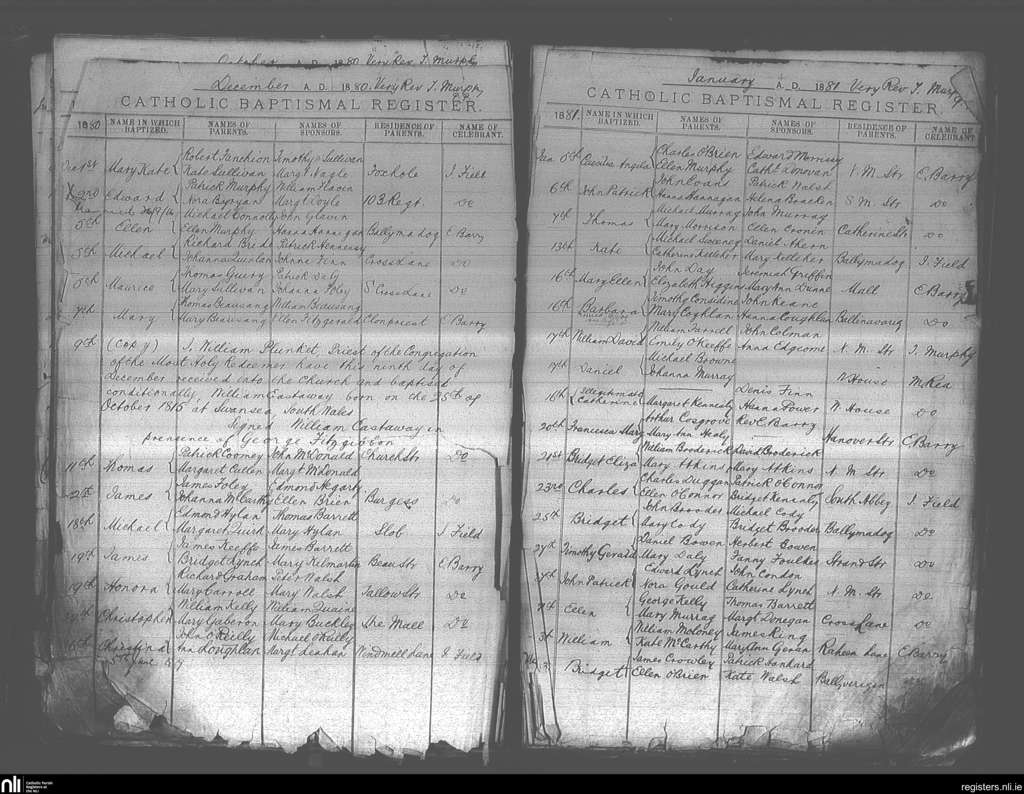 October A.D. 1880 Very Rev. T. Murphy
December A.D. 1880 Very Rev T. Murphy
CATHOLIC BAPTISMAL REGISTER.
1880 NAME IN WHICH BAPTIZED. NAMES OF PARENTS. NAMES OF SPONSORS. RESIDENCE OF PARENTS. NAME OF CELEBRANT.
Robert Timothy Sullivan
1st Mary Kate Kate Sullivan Margt Nagle Foxhole I. Field
Patrick Murphy William
2nd Edward Nora Margt Doyle 103 Regt. Do
Michael Connolly John Glavin
5th Ellen Ellen Murphy Hanna Hannigan Ballymadog C Barry
Richard Bride Patrick Hennessy
5th Michael Johanna Quinlan Johnna Finn Crosslane Do
Thomas Geiry Patrick Daly
5th Maurice Mary Sullivan Johanna Foley S Cross Lane Do
Thomas Beausang William Beausang
7th Mary Mary Beausang Ellen Fitzgerald Clonpriest C Barry
9th (Copy) I, William Plunket, Priest of the Congregation
of the Most Holy Redeemer have this ninth day of
December received into the Church and baptised
conditionally William Castaway born on the 25th of
October 1815 at Swansea, South Wales
Signed William Castaway in
presence of George Fitzgibbon
Patrick Cooney John McDonald Church St Do
11th Thomas Margaret Cullen Margt McDonald
James Foley Edmond Hegarty
12th James Johanna McCarthy Ellen Brien Burgess Do
Edmond Hylan Thomas Barrett
18th Michael Margaret Quirk Mary Hylan Slob I Field
James Keeffe James Barrett
19th James Bridget Lynch Mary Kilmartin Beau Str C Barry
Richard Graham Peter Walsh
19th Honora Mary Carroll Mary Walsh Tallow Str Do
William Kelly William Quaine
Christopher Mary Gaberon Mary Buckley The Mall Do
John O'Reilly Michael O'Reilly
Christina Ann Coughlan Margt Leahan Windmell Lane I. Field
January A.D. 1881 Very Rev T. Murphy
CATHOLIC BAPTISMAL REGISTER.
1881 NAME IN WHICH BAPTIZED. NAMES OF PARENTS. NAMES OF SPONSORS. RESIDENCE OF PARENTS. NAME OF CELEBRANT.
Charles O'Brien Edward Morrissy
Jan 5th Cecilia Angela Ellen Murphy Cathe Donovan N. M. Str C. Barry
John Evans Patrick Walsh
6th John Patrick Hanna Hannagan Helena Bracken S M. Str Do
Michael Murray John Murray
7th Thomas Mary Morrison Ellen Cronin Catherine Str Do
Michael Sweeney Daniel Ahern
13th Kate Catherine Kelleher Mary Kelleher Ballymadog I. Field
John Day Jeremiah Griffin
16th Mary Ellen Elizabeth Higgins Mary Ann Dunne Mall C Barry
Timothy Considine John Keane
16th Barbara Mary Coghlan Hanna Coughlan Ballinavarig Do
William Farrell John Colman
17th William David Emily O'Keeffe Anna Edgcome N. M. Str T. Murphy
Michael Browne
17th Daniel Johanna Murray W House M Rea
Illegitimate Denis Finn
16th Catherine Margaret Kenneally Hanna Power W. House Do
Arthur Cosgrove Rev C. Barry
20th Francesca Mary Mary Ann Healy Hanover Str C Barry
William Broderick David Broderick
21st Bridget Eliza Mary Atkins Mary Atkins N. M. Str Do
Charles Duggan Patrick O'Connor
23rd Charles Ellen O'Connor Bridget Keneally South Abbey I Field
John Brooder Michael Cody
25th Bridget Mary Cody Bridget Brooder Ballymadog Do
Daniel Bowen Herbert Bowen
27th Timothy Gerard Mary Daly Fanny Foulkes Strand Str Do
Edward Lynch John Condon
27th John Patrick Nora Gould Catherine Lynch N. M. Str Do
George Kelly Thomas Barrett
Ellen Mary Murray Margt Donegan Cross Lane Do
William Moloney James King
William Kate McCarthy Mary Ann Geran Raheen Lane C Barry
James Crowley Patrick
Bridget Ellen O'Brien Kate Walsh
nli
Catholic Parish
Registers at
the NLI
registers.nli.ie